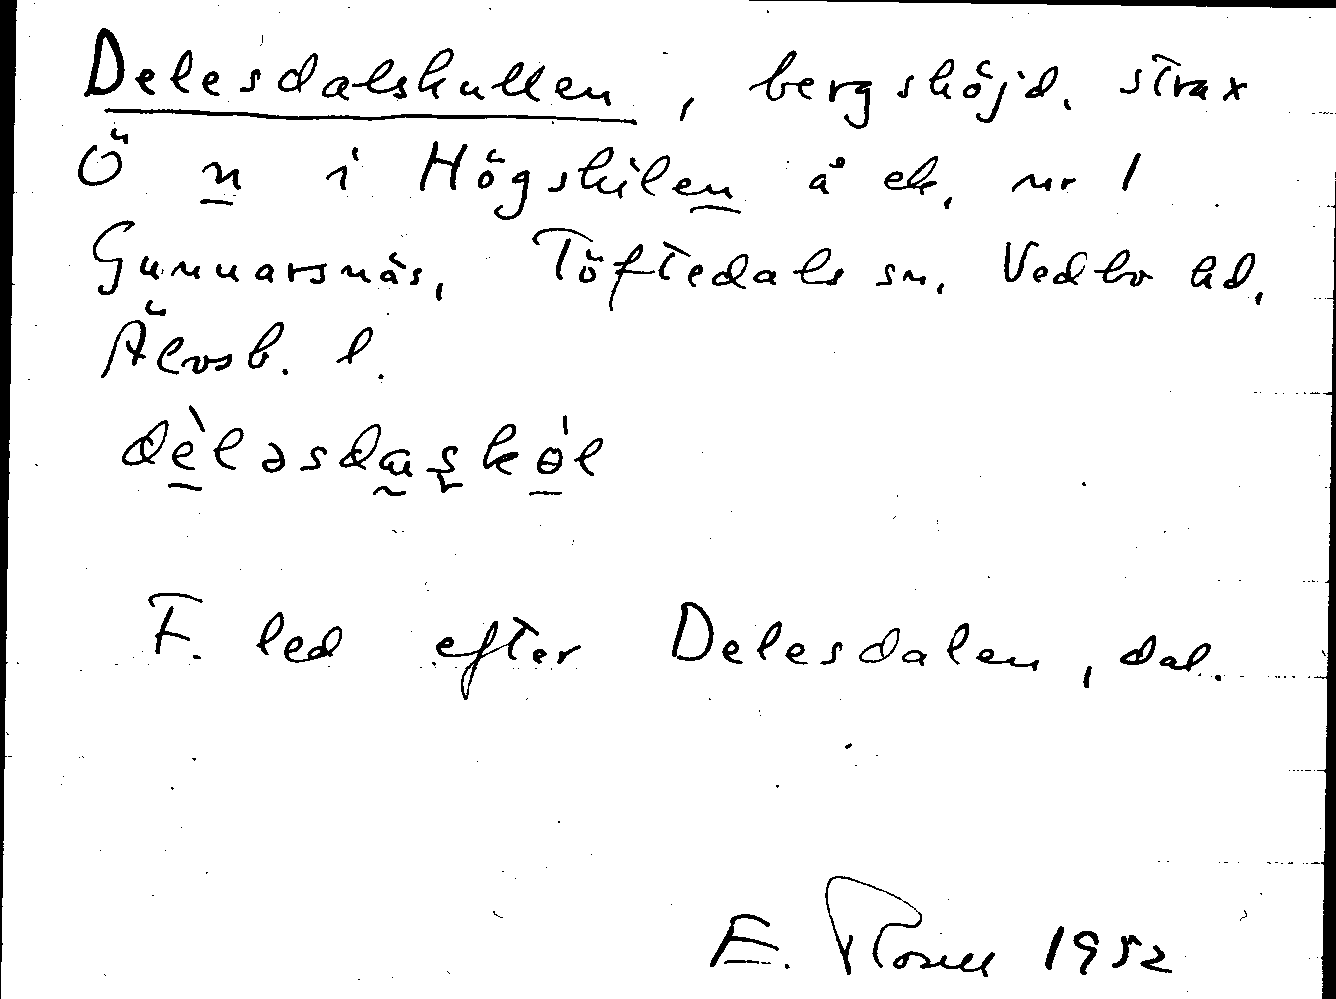 Delesdalskullen, bergshöjd, strax
Ö n i Högskilen å ek, nr 1
Gunnarsnäs, Töftedals sn, Vedbo hd,
Älvsb. l.
dèləsdaşkòl
F. led efter Delesdalen, dal.
E. Rosell 1952